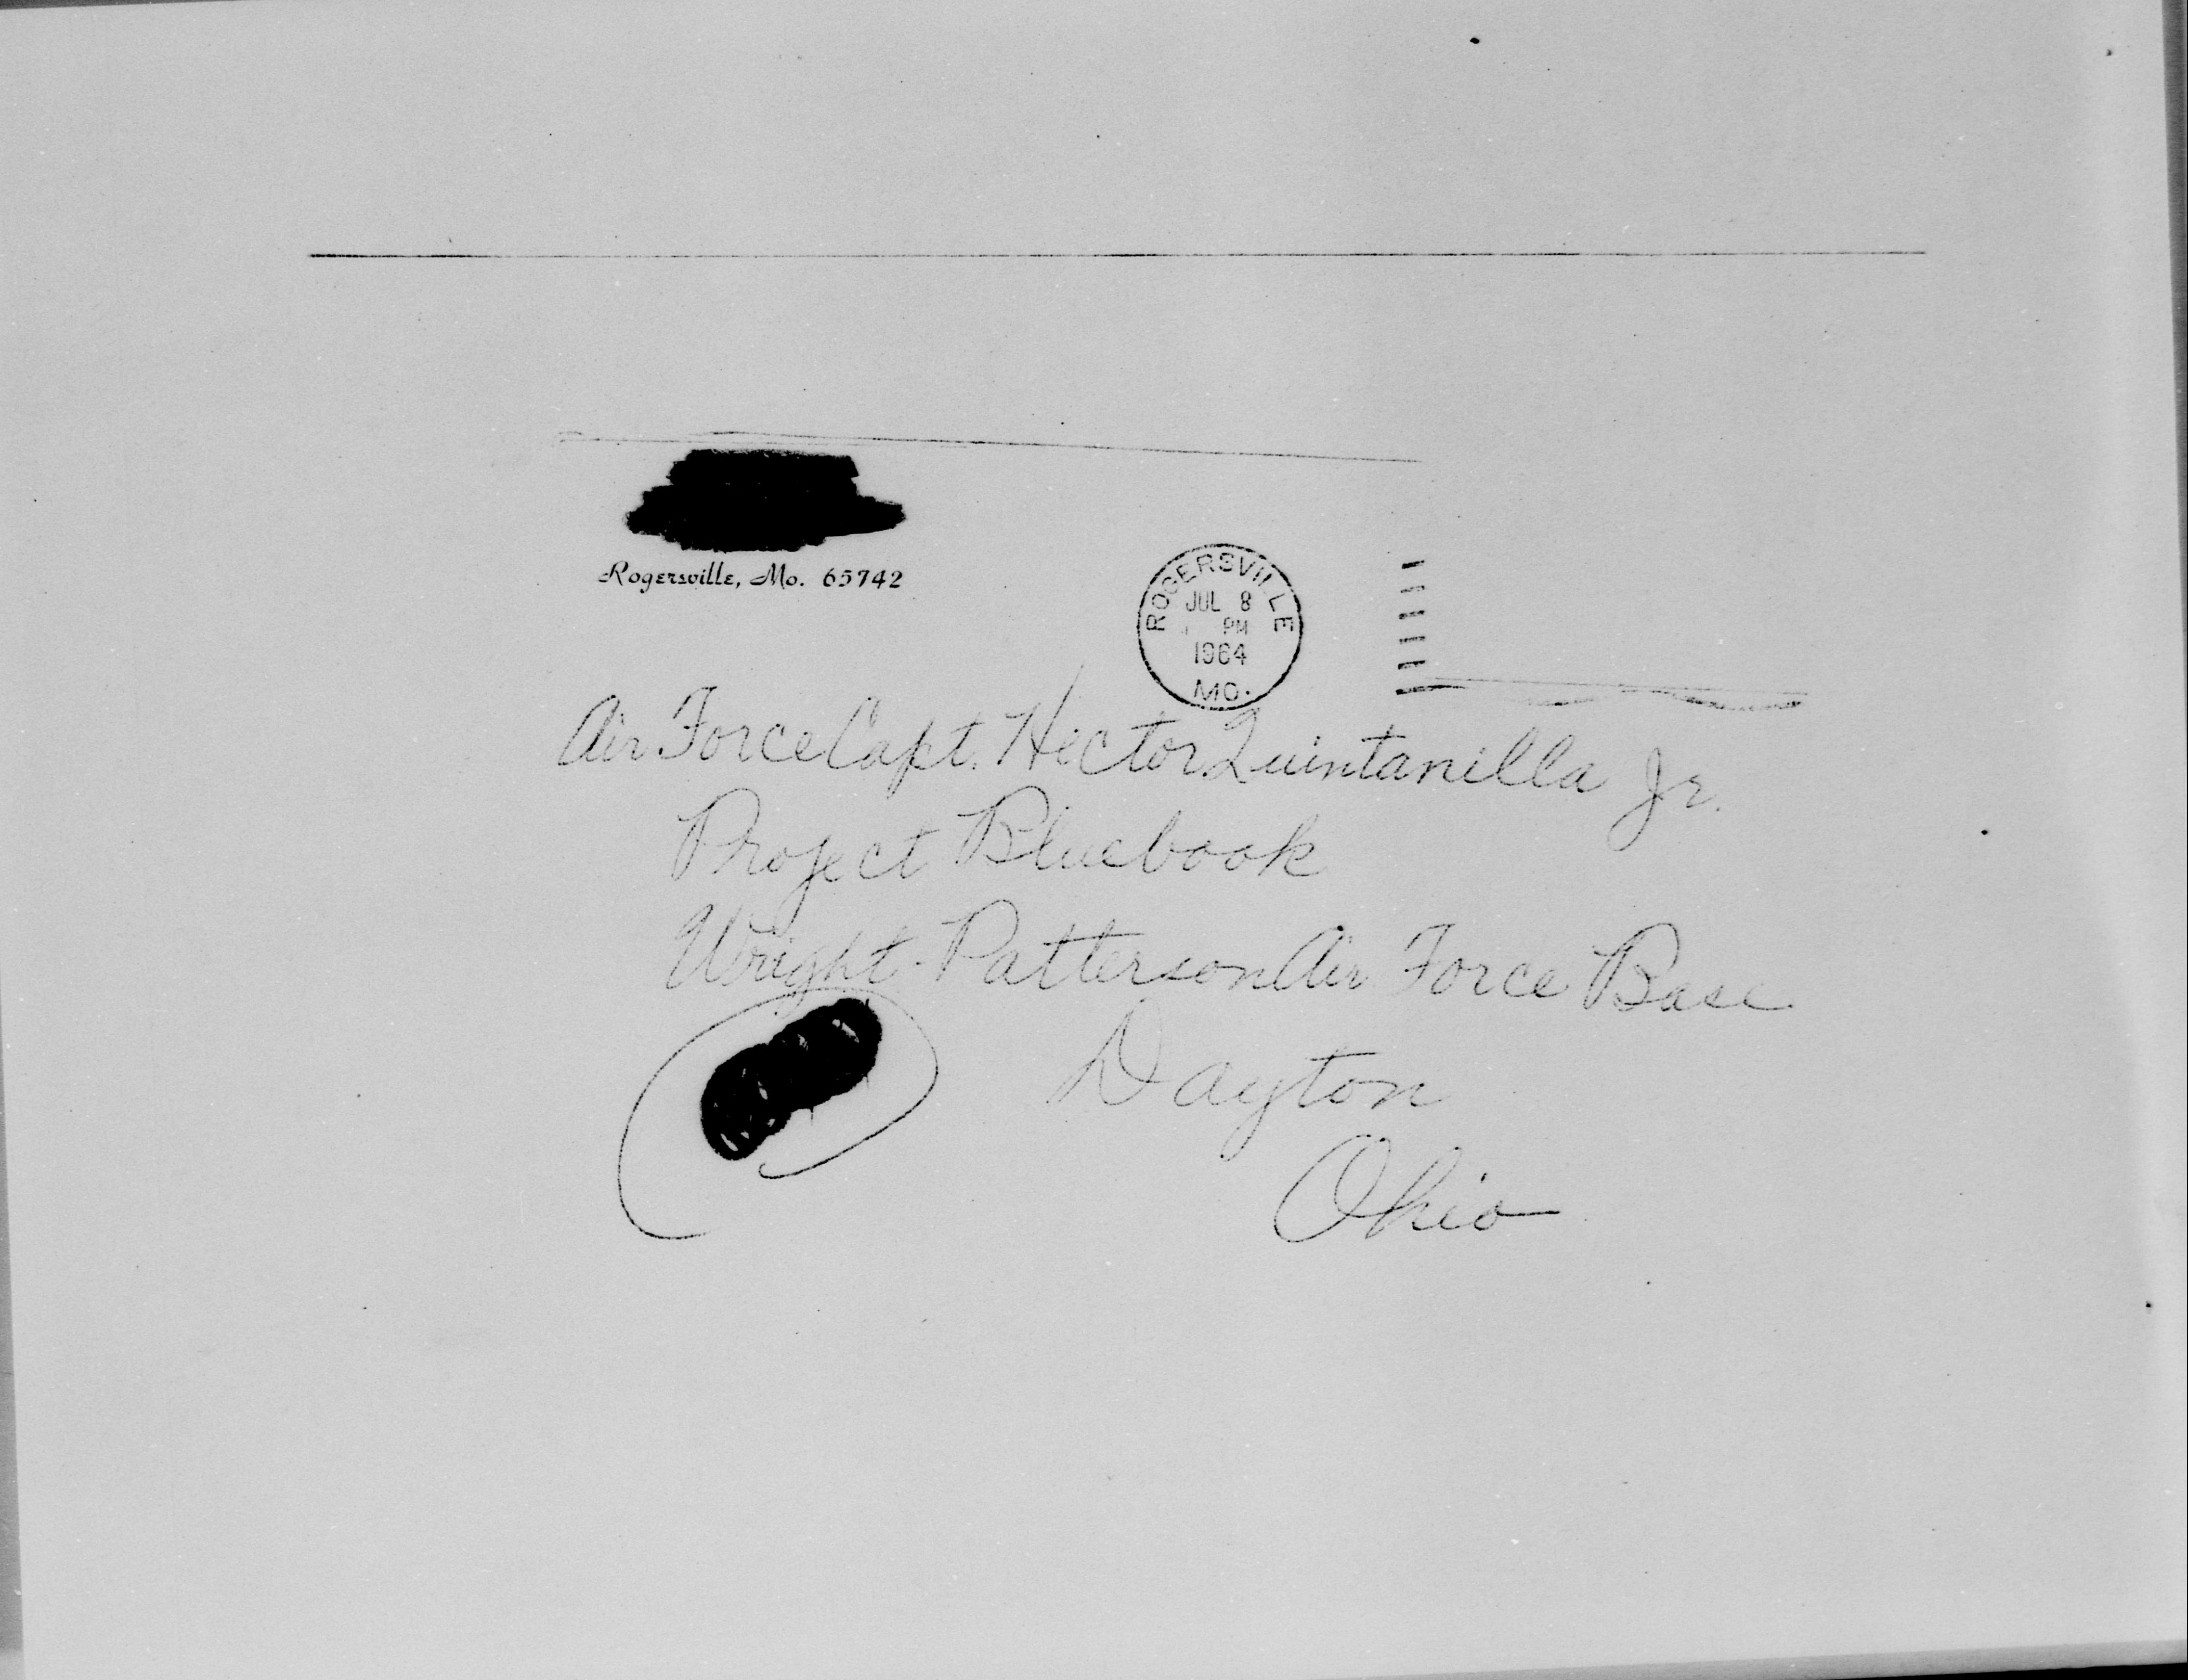 Rogersville, Mo. 65742
ROGERSVILLE
JUL 8
PM
1964
MO.
Air Force Capt. Hector Quintanilla Jr.
Project Bluebook
Wright-Patterson Air Force Base
Dayton
Ohio